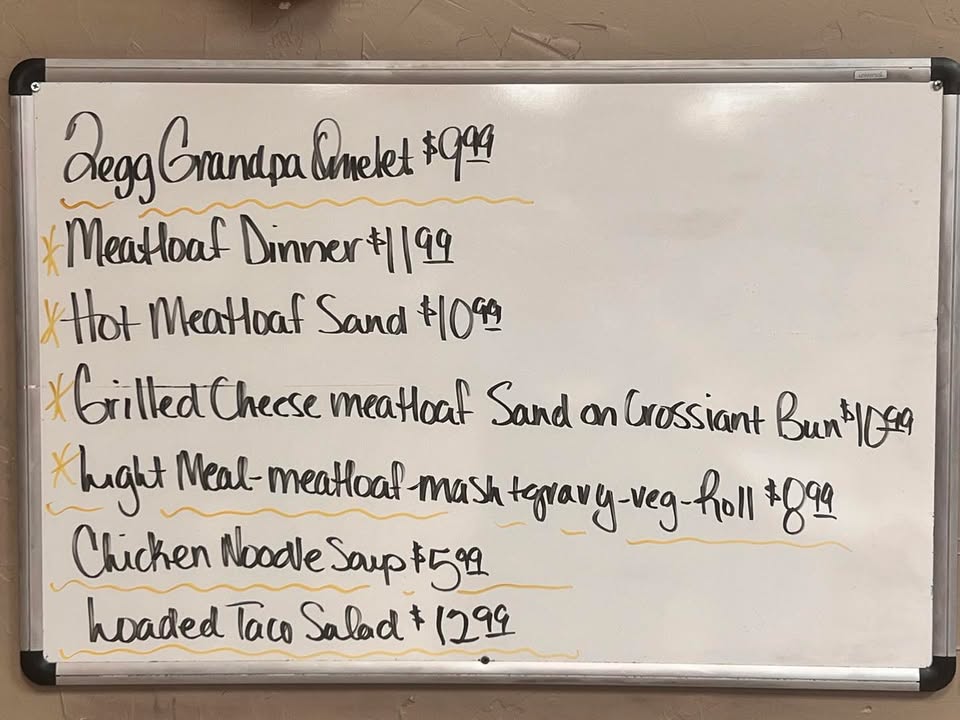 2egg Grandpa Omelet $9.99
* Meatloaf Dinner $11.99
* Hot Meatloaf Sand $10.99
* Grilled Cheese meatloaf Sand on Crossiant Bun $10.99
* Light Meal-meatloaf-mash+gravy-veg-Roll $8.99
Chicken Noodle Soup $5.99
Loaded Taco Salad $12.99